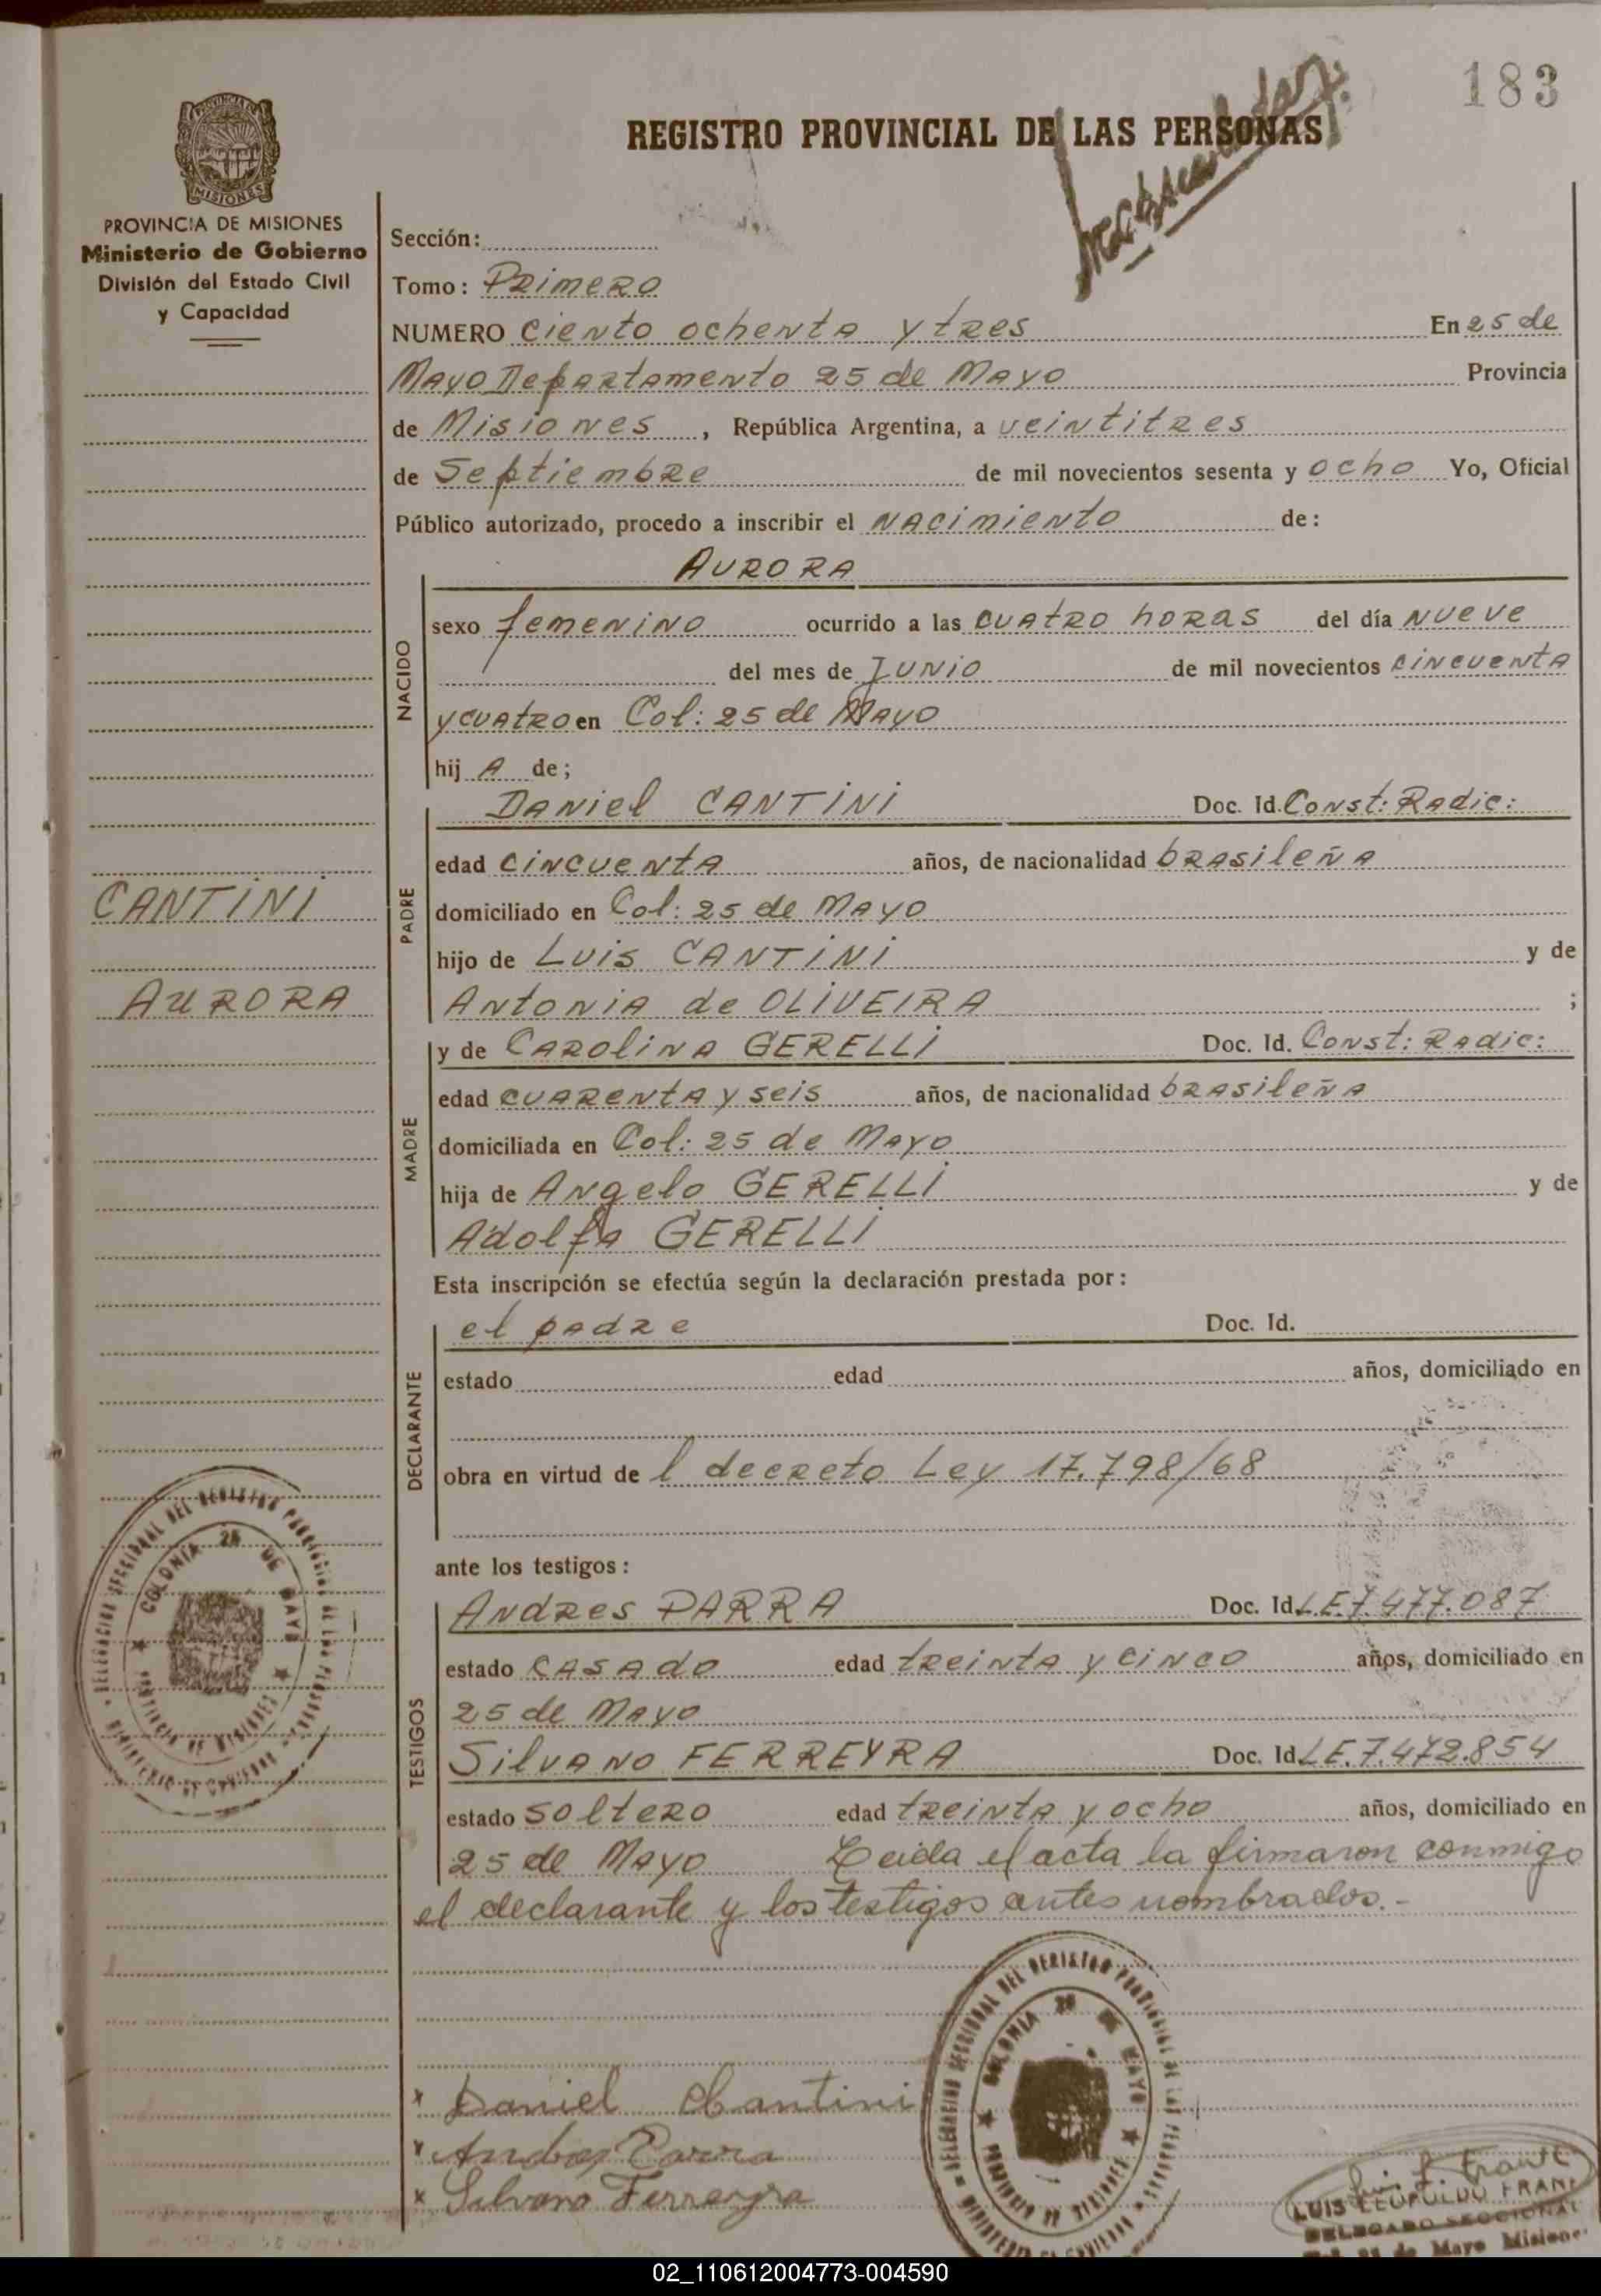 183
REGISTRO PROVINCIAL DE LAS PERSONAS
MISIONES
PROVINCIA DE MISIONES
Ministerio de Gobierno
División del Estado Civil
y Capacidad
Sección:
Tomo: Primero
NUMERO ciento ochenta y tres En 25 de
Mayo Departamento 25 de Mayo Provincia
de Misiones, República Argentina, a veintitres
de Septiembre de mil novecientos sesenta y ocho Yo, Oficial
Público autorizado, procedo a inscribir el nacimiento de:
NACIDO
AURORA
sexo femenino ocurrido a las cuatro horas del día nueve
del mes de Junio de mil novecientos cincuenta
y cuatro en Col: 25 de Mayo
hij A de;
PADRE
Daniel CANTINI Doc. Id. Const: Radic:
edad cincuenta años, de nacionalidad brasileña
CANTINI
domiciliado en Col: 25 de Mayo
hijo de Luis CANTINI y de
AURORA
Antonia de OLIVEIRA ;
MADRE
y de Carolina GERELLI Doc. Id. Const: Radic:
edad cuarenta y seis años, de nacionalidad brasileña
domiciliada en Col: 25 de Mayo
hija de Angelo GERELLI y de
Adolfa GERELLI
Esta inscripción se efectúa según la declaración prestada por:
DECLARANTE
el padre Doc. Id.
estado edad años, domiciliado en
obra en virtud de l decreto Ley 17.798/68
ante los testigos:
TESTIGOS
Andres PARRA Doc. Id. L.E. 7.477.087
estado casado edad treinta y cinco años, domiciliado en
25 de Mayo
Silvano FERREYRA Doc. Id. L.E. 7.472.854
estado soltero edad treinta y ocho años, domiciliado en
25 de Mayo Leida el acta la firmaron conmigo
el declarante y los testigos antes nombrados.-
COLONIA 25 DE MAYO
PROVINCIA DE MISIONES
x Daniel Cantini
x Andres Parra
x Silvano Ferreyra
COLONIA 25 DE MAYO
PROVINCIA DE MISIONES
LUIS LEOPOLDO FRANK
DELEGADO SECCIONAL
de Mayo Misiones
02_110612004773-004590